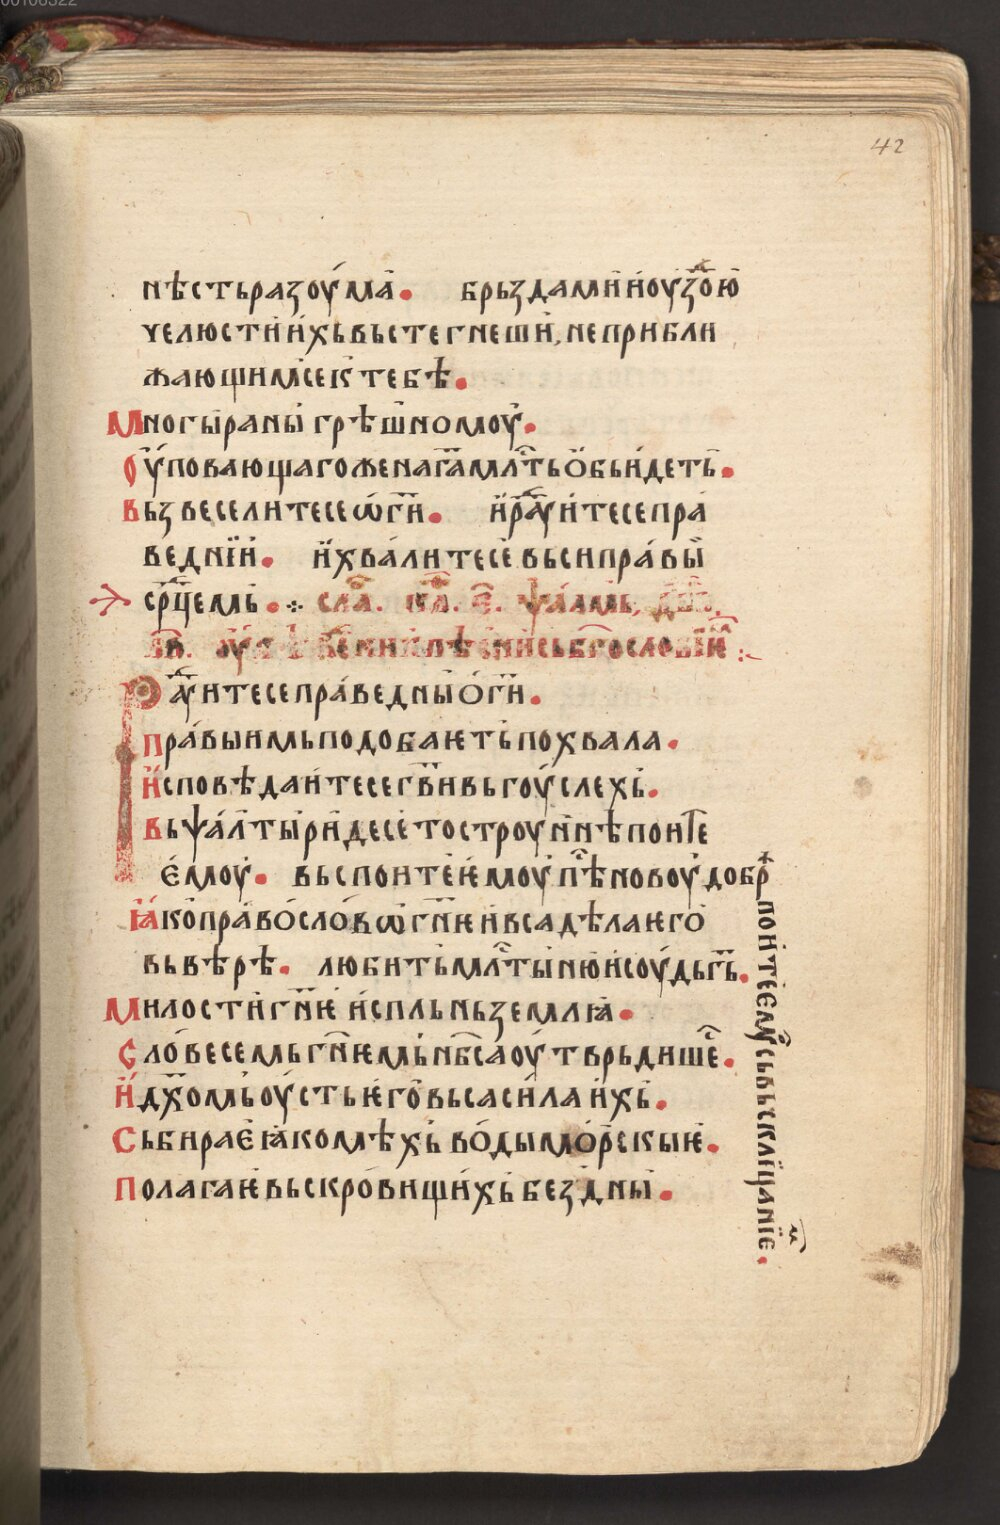 42
нѣсть разоу́ма. брьздами и оу҆здо́ю
челюсти и҆хь вьстегнеши, не прибли
жающимсе к тебѣ.
Многы раны грѣшномоу.
Оу҆повающаго же на га҃ млⷭ҇ть ѻ҆бьидеть.
Вьзвеселитесе ѡ҆ гн҃и. и҆ раⷣуитесе пра
ведни́и. и҆ хвалитесе вьси пра́вы
срⷣцемь. сла. ка. є҃. ѱалмь, дв҃дь.
Раⷣуитесе пра́ведны ѻ҆ гн҃и.
пра́выимь подобаѥть похвала.
И҆сповѣдаитесе гв҃и вь гоу́слехь.
вь ѱалтыри десетострouннѣ поите
ѥмоу. вьспоите ѥмоу пѣⷭ нову добрѣ
поите ѥмоу сь вьсклицаниеⷨ.
Ꙗ҆ко пра́во сло́во гн҃ѥ и вса дѣла ѥго
вь вѣрѣ. любить млⷭ҇тыню и соудь гь҃.
Милости гн҃ѥ и҆спльнь землꙗ.
Сло́весемь гн҃ѥмь нб҃са оу҆тврьдишеⷭ.
И҆ дх҃омь оу҆сть ѥго вьса сила и҆хь.
Сьбираѥ ꙗко мѣхь во́ды мо́рскыѥ.
Полагаѥ вь скровищихь бездны.